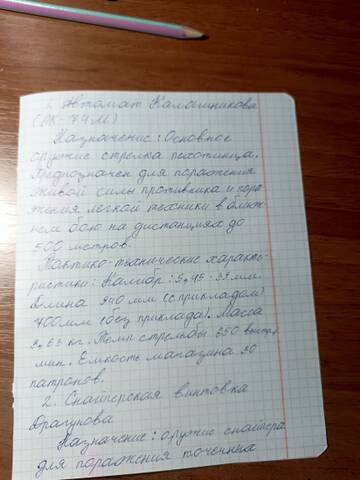 1. Автомат Калашникова
(АК-74М)
Назначение: Основное
оружие стрелка пехотинца.
Предназначен для поражения
живой силы противника и пора-
жения легкой техники в ближ-
нем бою на дистанциях до
500 метров.
Тактико-технические характе-
ристики: Калибр: 5,45 · 39 мм.
Длина 940 мм (с прикладом)
700 мм (без приклада). Масса
3,63 кг. Темп стрельбы 650 выстр/
мин. Емкость магазина 30
патронов.
2. Снайперская винтовка
Драгунова
Назначение: оружие снайпера
для поражения точечных